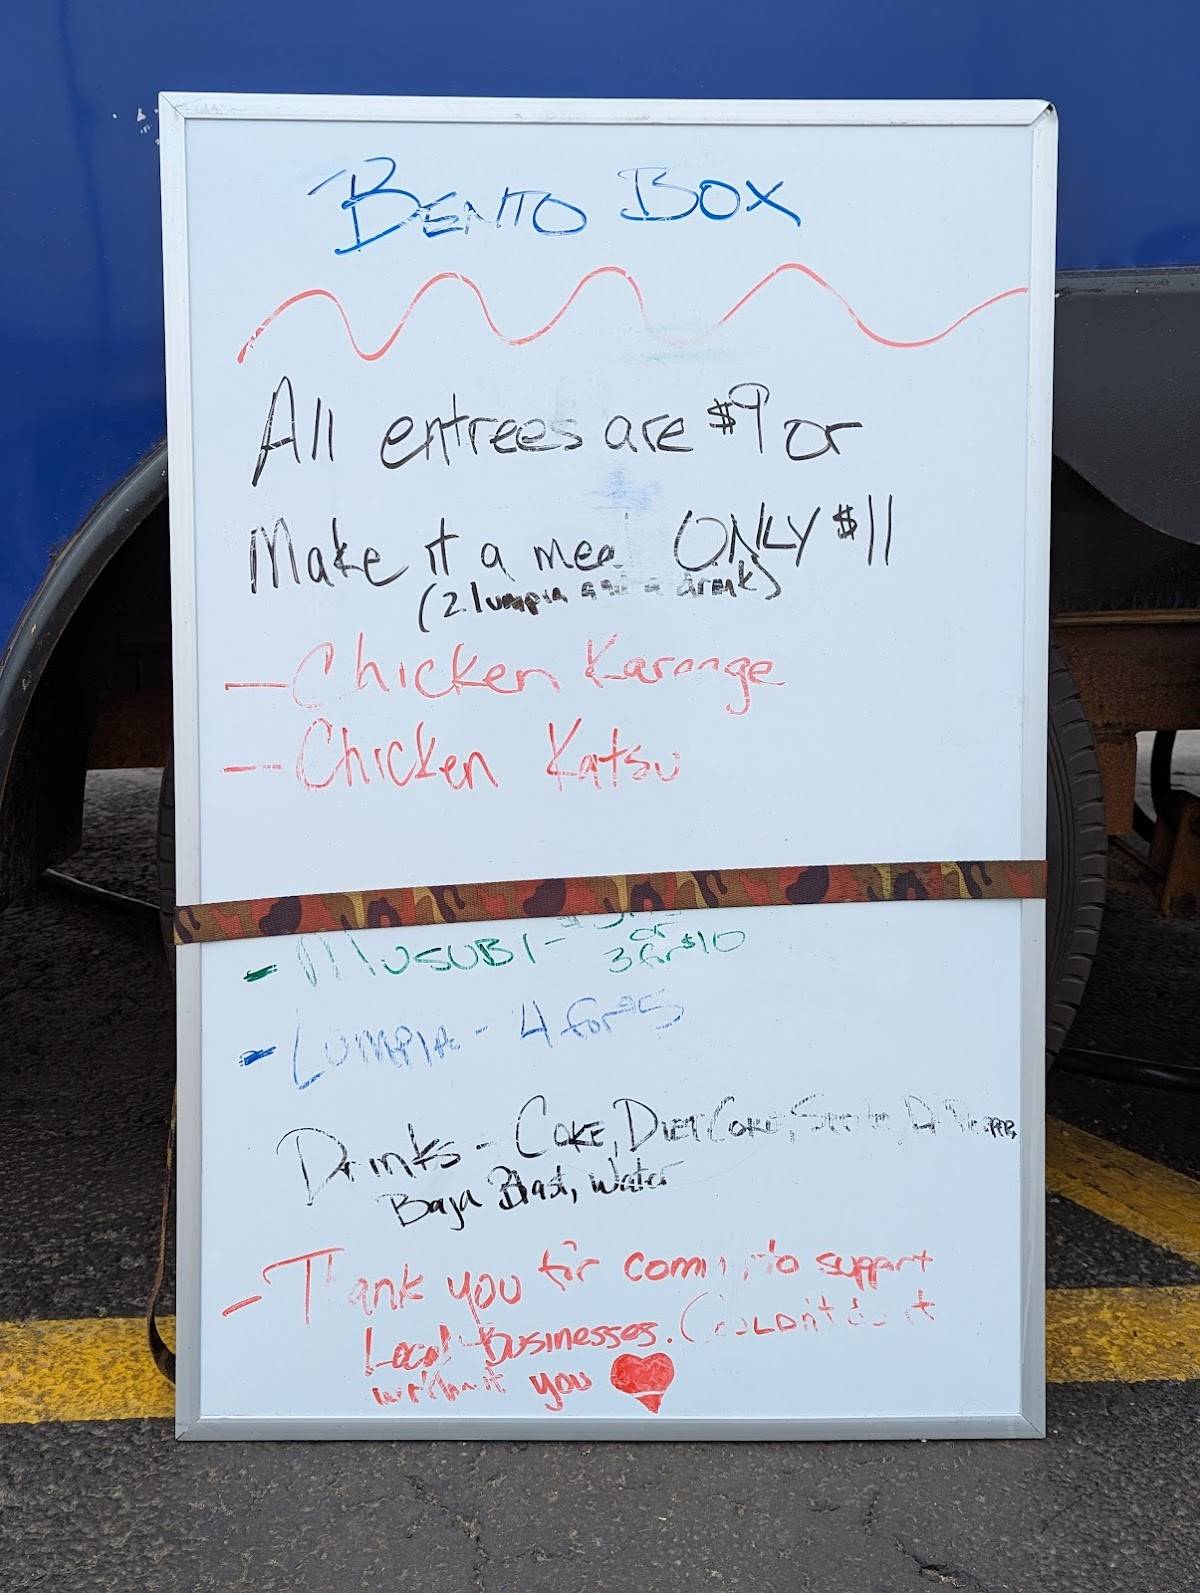 BENTO BOX
All entrees are $9 or
Make it a meal ONLY $11
(2 lumpia and a drink)
- Chicken Karange
- Chicken Katsu
- MUSUBI -
or
3 for $10
- LUMPIA - 4 for $5
Drinks - COKE, DIET COKE, Sprite, Dr PEPPER,
Baja Blast, Water
- Thank you for coming to support
Local Businesses. COULDn't do it
without you